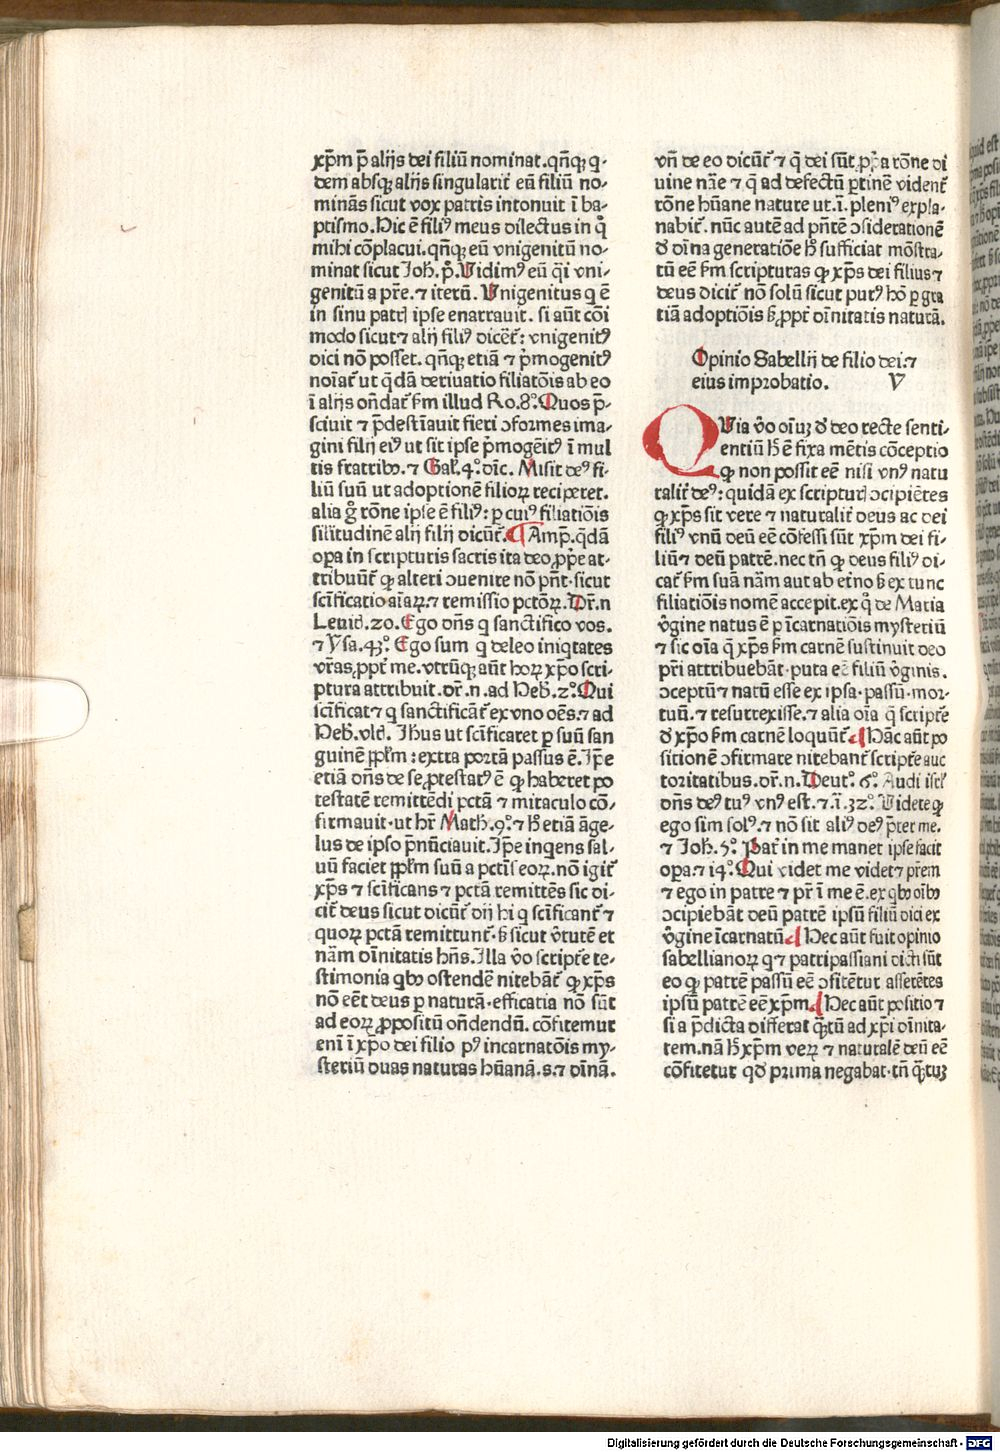 xp̄m p̄ alijs dei filiū nominat. qn̄qꝫ q-
dem absqꝫ alijs singularit᷑ eū filiū no-
minās sicut vox patris intonuit ī ba-
ptismo. Hic ē filiꝰ meus dilectus in q̊
mihi cōplacui. qn̄qꝫ eū vnigenitū no-
minat sicut Joh̄. p̊. Vidimꝰ eū q̄i vni-
genitū a pr̄e. ⁊ iterū. Vnigenitus q ē
in sinu patrꝭ ipse enarrauit. si aūt cōi
modo sicut ⁊ alij filiꝰ dicēt᷑: vnigenitꝰ
dici nō posset. qn̄qꝫ etiā ⁊ p̊mogenitꝰ
noīat᷑ ut q̄dā deriuatio filiatōis ab eo
ī alijs on̄dat᷑ ẜm illud Ro.8.º Quos p̄-
sciuit ⁊ p̄destīauit fieri ɔformes ima-
gini filij eiꝰ ut sit ipse p̊mogēitꝰ ī mul
tis fratribꝰ. ⁊ Gal᷑. 4.º dīc. Misit deꝰ fi-
liū suū ut adoptionē filioꝝ reciperet.
alia g̊ rōne ipse ē filiꝰ: ꝑ cuiꝰ filiatiōis
sil̄itudinē alij filij dicūt᷑. ¶ Amp̄. q̄dā
oꝑa in scripturis sacris ita deo ꝓp̄e at-
tribuūt᷑ ꝙ alteri ɔuenire nō pn̄t. sicut
scīficatio aīaꝝ. ⁊ remissio pctōꝝ. Dr̄. n
Leuid. 20. Ego dn̄s q sanctifico vos.
⁊ Ysa. 43.º Ego sum q deleo iniq̇tates
vr̄as. ꝓpt᷑ me. vtrūqꝫ aūt hoꝝ xp̄o scri-
ptura attribuit. dr̄. n. ad Heb̄. 2.º Qui
scīficat ⁊ q sanctificāt᷑ ex vno oēs. ⁊ ad
Heb̄. vlt᷑. Jhūs ut scīficaret ꝑ suū san
guinē ppl̄m: extra portā passus ē. Jp̄e
etiā dn̄s de se ꝓtestatꝰ ē ꝙ haberet po
testatē remittēdi pctā ⁊ miraculo cō-
firmauit. ut hr̄ Math̄. 9.º ⁊ h̄ etiā āge-
lus de ipso p̄nūciauit. Jp̄e inqens sal-
uū faciet ppl̄m suū a pctīs eoꝝ. nō igit᷑
xp̄s ⁊ scīficans ⁊ pctā remittēs sic di-
cit᷑ deus sicut dicūt᷑ dij hi q scīficant᷑ ⁊
quoꝝ pctā remittunt᷑. ẜ sicut v̊tutē et
nām diīnitatis hn̄s. Jlla v̊o scriptr̄e te-
stimonia qbꝰ ostendē nitebāt᷑ ꝙ xp̄s
nō eēt deus ꝑ naturā. efficatia nō sūt
ad eoꝝ ꝓpositū on̄dendū. cōfitemur
enī ī xp̄o dei filio pꝰ incarnatōis my-
steriū duas naturas hūanā. s. ⁊ diīnā.
vn̄ de eo dicūt᷑ ⁊ q̄ dei sūt. ꝓp̄a rōne di
uine nāe ⁊ q̄ ad defectū ꝑtinē vident᷑
rōne hūane nature ut. ī. pleniꝰ expla-
nabit᷑. nūc autē ad pn̄tē ɔsiderationē
ď diīna generatiōe h̄ sufficiat mōstra-
tū eē ẜm scripturas ꝙ xp̄s dei filius ⁊
deus dicit᷑ nō solū sicut purꝰ hō ꝑ gra
tiā adoptiōis ẜ ꝓpt᷑ diīnitatis naturā.
Opinio Sabellij de filio dei. ⁊
eius improbatio. V
QVia v̊o oīuꝫ ď deo recte senti-
entiū h̄ ē fixa mētis cōceptio
ꝙ non possit eē nisi vnꝰ natu
ralit᷑ deꝰ: quidā ex scripturꝭ ɔcipiētes
ꝙ xp̄s sit vere ⁊ naturalit᷑ deus ac dei
filiꝰ vnū deū eē cōfessi sūt xp̄m dei fi-
liū ⁊ deū patrē. nec tn̄ ꝙ deus filiꝰ di-
cat᷑ ẜm suā nām aut ab et̄no ẜ ex tunc
filiatiōis nomē accepit. ex q̊ de Maria
v̊gine natus ē ꝑ īcarnatiōis mysteriū
⁊ sic oīa q̄ xp̄s ẜm carnē sustinuit deo
pr̄i attribuebāt. puta eē filiū v̊ginis.
ɔceptū ⁊ natū esse ex ipsa. passū. mor-
tuū. ⁊ resurrexisse. ⁊ alia oīa q̄ scriptr̄e
ď xp̄o ẜm carnē loquūt᷑ ¶ Hāc aūt po
sitionē ɔfirmare nitebant᷑ scriptr̄e auc
toritatibus. dr̄. n. Deut̄.º 6.º Audi isrl̄
dn̄s deꝰ tuꝰ vnꝰ est. ⁊. ī. 32.º Videte ꝙ
ego sim solꝰ. ⁊ nō sit aliꝰ deꝰ p̄ter me.
⁊ Joh̄. 5.º Pat᷑ in me manet ipse facit
oꝑa. ⁊ 14.º Qui videt me videt ⁊ pr̄em
⁊ ego in patre ⁊ pr̄ ī me ē. ex qbꝰ oībꝰ
ɔcipiebāt deū patrē ipsū filiū dici ex
v̊gine īcarnatū ¶ Hec aūt fuit opinio
sabellianoꝝ q ⁊ patripassiani dicti sūt
eo ꝙ patrē passū eē ɔfitētur asserētes
ipsū patrē eē xp̄m ¶ Hec aūt positio ⁊
si a p̄dicta differat q̄tū ad xp̄i diīnita-
tem. nā h̄ xp̄m verꝝ ⁊ naturalē deū eē
cōfitetur qď prima negabat. tn̄ q̄tuꝫ
Digitalisierung gefördert durch die Deutsche Forschungsgemeinschaft - DFG